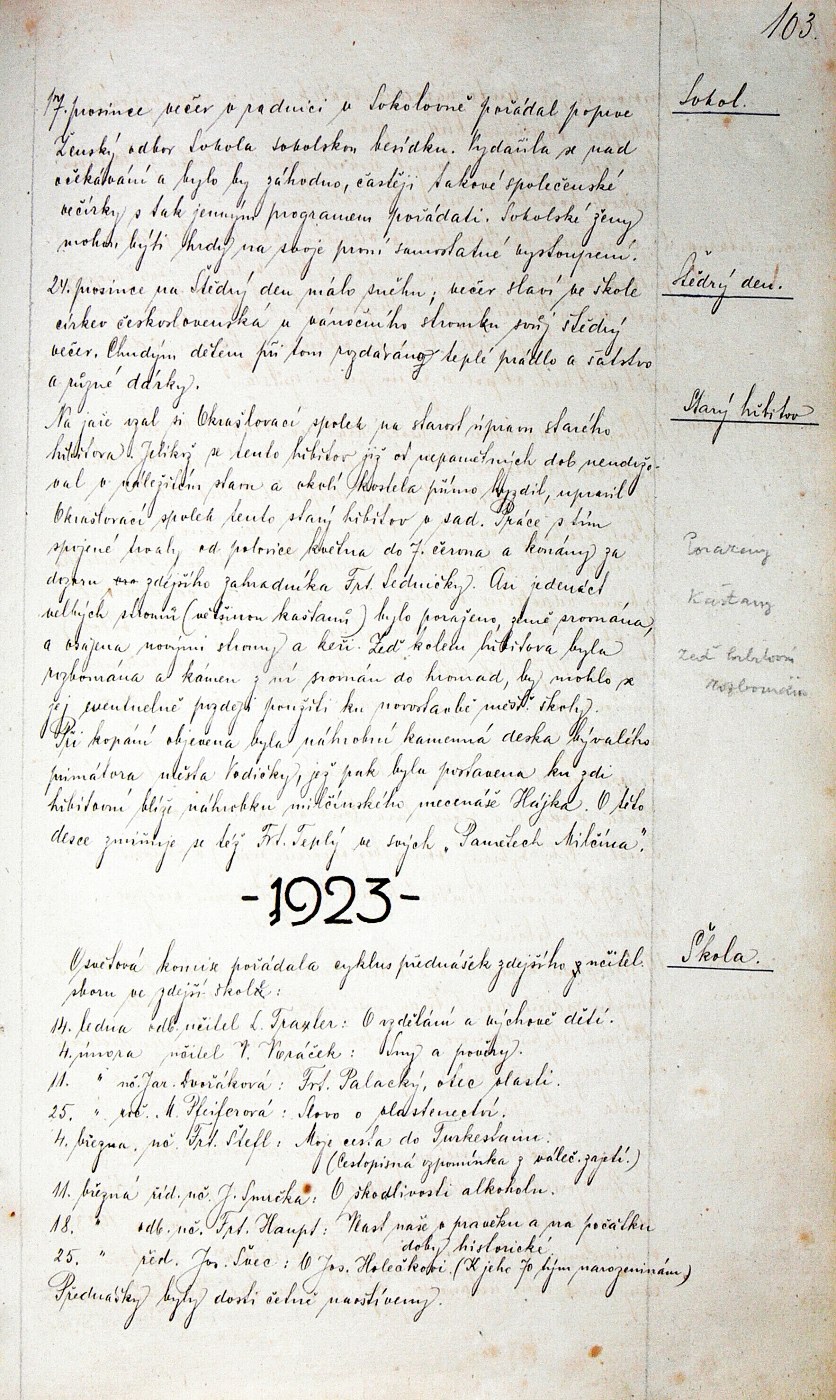 103.
Sokol.
17. prosince večer v radnici v Sokolovně pořádal poprve
Ženský odbor Sokola sokolskou besídku. Vydařila se nad
očekávání a bylo by záhodno, častěji takové společenské
večírky s tak jemným programem pořádati. Sokolské ženy
mohou býti hrdy na svoje první samostatné vystoupení.
Štědrý den.
24. prosince na Štědrý den málo sněhu; večer slaví ve škole
církev československá u vánočního stromku svůj štědrý
večer. Chudým dětem při tom rozdávány teplé prádlo a šatstvo
a různé dárky.
Starý hřbitov
Na jaře vzal si Okrašlovací spolek na starost úpravu starého
hřbitova. Jelikož se tento hřbitov již od nepamětných dob neudržo-
val v náležitém stavu a okolí kostela přímo hyzdil, upravil
Okrašlovací spolek tento starý hřbitov v sad. Práce s tím
spojené trvaly od polovice května do 7. června a konány za
dozoru zdejšího zahradníka Frt. Sedničky. Asi jedenáct
velkých stromů (většinou kaštanů) bylo poraženo, země srovnána,
a osázena novými stromy a keři. Zeď kolem hřbitova byla
rozbourána a kámen z ní srovnán do hromad, by mohlo se
jej eventuelně později použíti ku novostavbě měšť. školy.
Poraženy
Kaštany
Zeď hřbitovní
rozbourána
Při kopání objevena byla náhrobní kamenná deska bývalého
primátora města Vodičky, jež pak byla postavena ku zdi
hřbitovní blíže náhrobku milčínského mecenáše Hájka. O této
desce zmiňuje se též Frt. Teplý ve svých „Pamětech Milčína".
-1923-
Škola.
Osvětová komise pořádala cyklus přednášek zdejšího učitel.
sboru ve zdejší škole:
14. ledna odb. učitel L. Traxler: O vzdělání a výchově dětí.
4. února učitel V. Voráček: Sny a pověry.
11. " uč. Jar. Dvořáková: Frt. Palacký, otec vlasti.
25. " M. Pfeiferová: Slovo o vlastenectví.
4. března. uč. Frt. Štefl: Moje cesta do Turkestanu.
(Cestopisná vzpomínka z váleč. zajetí.)
11. března říd. uč. J. Smrčka: O škodlivosti alkoholu.
18. " odb. uč. Frt. Haupt: Vlast naše v pravěku a na počátku
doby historické
25. " řed. Jos. Švec: O Jos. Holečkovi. (K jeho 70 tým narozeninám)
Přednášky byly dosti četně navštíveny.